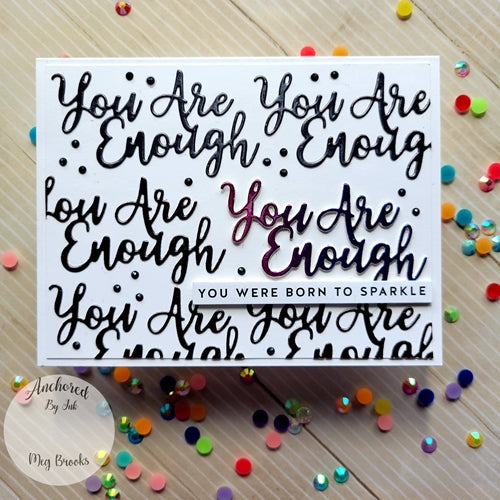 You Are
Enough
You Are
Enoug
You Are
Enough
You Are
Enough
YOU WERE BORN TO SPARKLE
You Are
Enough
You Are
Enough
Anchored
By Ink
Meg Brooks